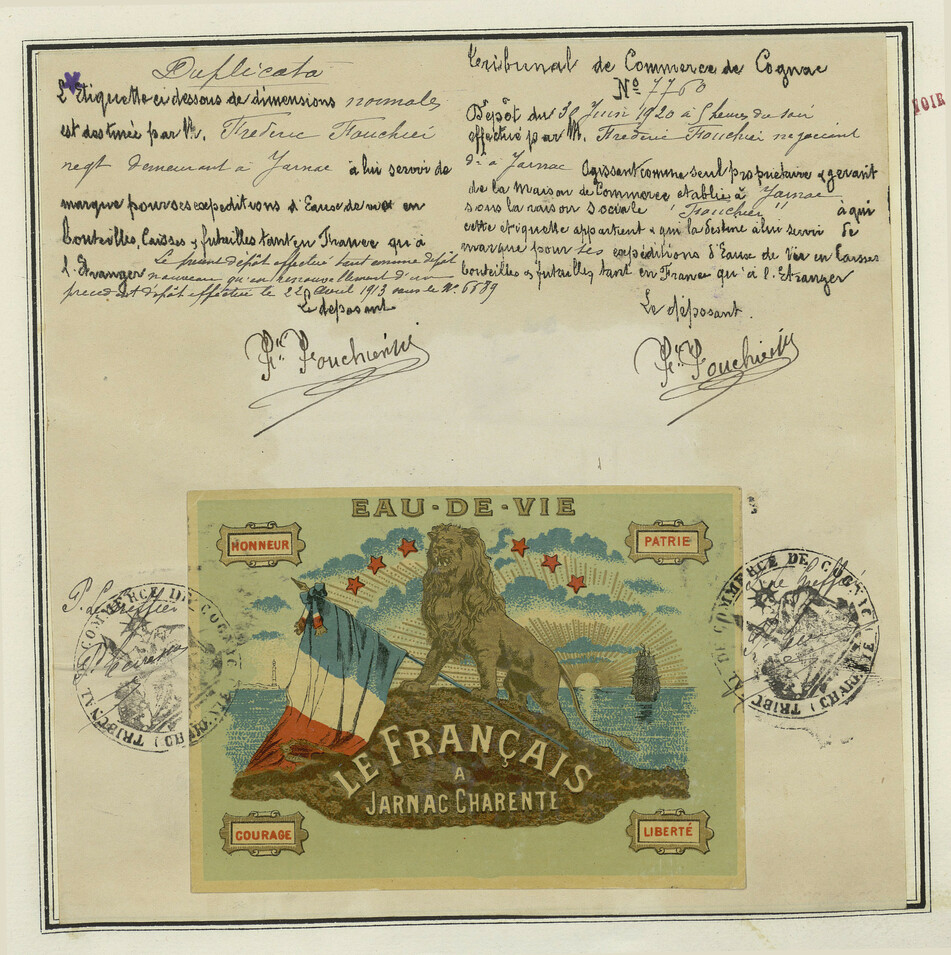 Duplicata
L'Etiquette ci dessous de dimensions normales
est destinée par M. Frédéric Fouchier
negt demeurant à Jarnac à lui servir de
marque pour ses expeditions d'Eaux de vie en
bouteilles, Caisses & futailles tant en France qu'à
l'Etranger
Le présent dépôt effectué tant comme dépôt
nouveau qu'en renouvellement d'un
précédent dépôt effectué le 22 avril 1913 sous le No. 6689
Le déposant
Fc Fouchier
Tribunal de Commerce de Cognac
No 7760
Dépôt du 30 Juin 1920 à 5 heures du soir
effectué par M. Frédéric Fouchier négociant
dt à Jarnac Agissant comme seul propriétaire & gerant
de la Maison de Commerce etablie à Jarnac
sous la raison sociale "Fouchier" à qui
cette etiquette appartient & qui la destine à lui servir de
marque pour ses expéditions d'Eaux de Vie en Caisses
bouteilles & futailles tant en France qu'à l'Etranger
Le déposant.
Fc Fouchier
NOIR
EAU-DE-VIE
HONNEUR
PATRIE
LE FRANÇAIS
A
JARNAC CHARENTE
COURAGE
LIBERTÉ
P. Le Greffier
TRIBUNAL DE COMMERCE DE COGNAC (CHARENTE)
TRIBUNAL DE COMMERCE DE COGNAC (CHARENTE)